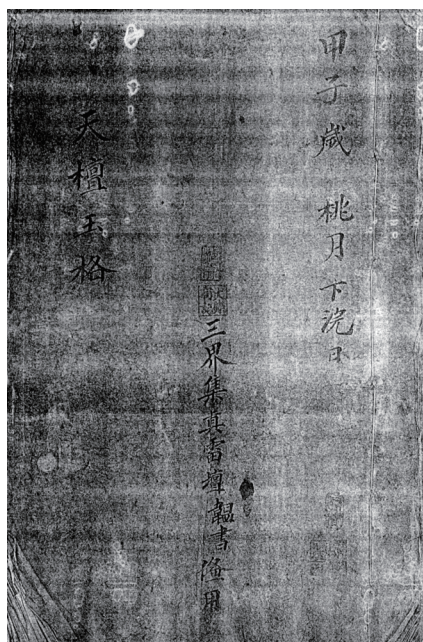 甲子歲 桃月下浣日
三界集真雷壇韞書俻用
天檀玉格